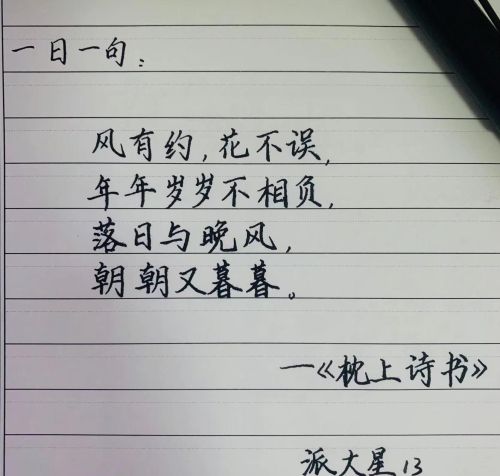 一日一句：
风有约，花不误，
年年岁岁不相负，
落日与晚风，
朝朝又暮暮。
—《枕上诗书》
派大星13